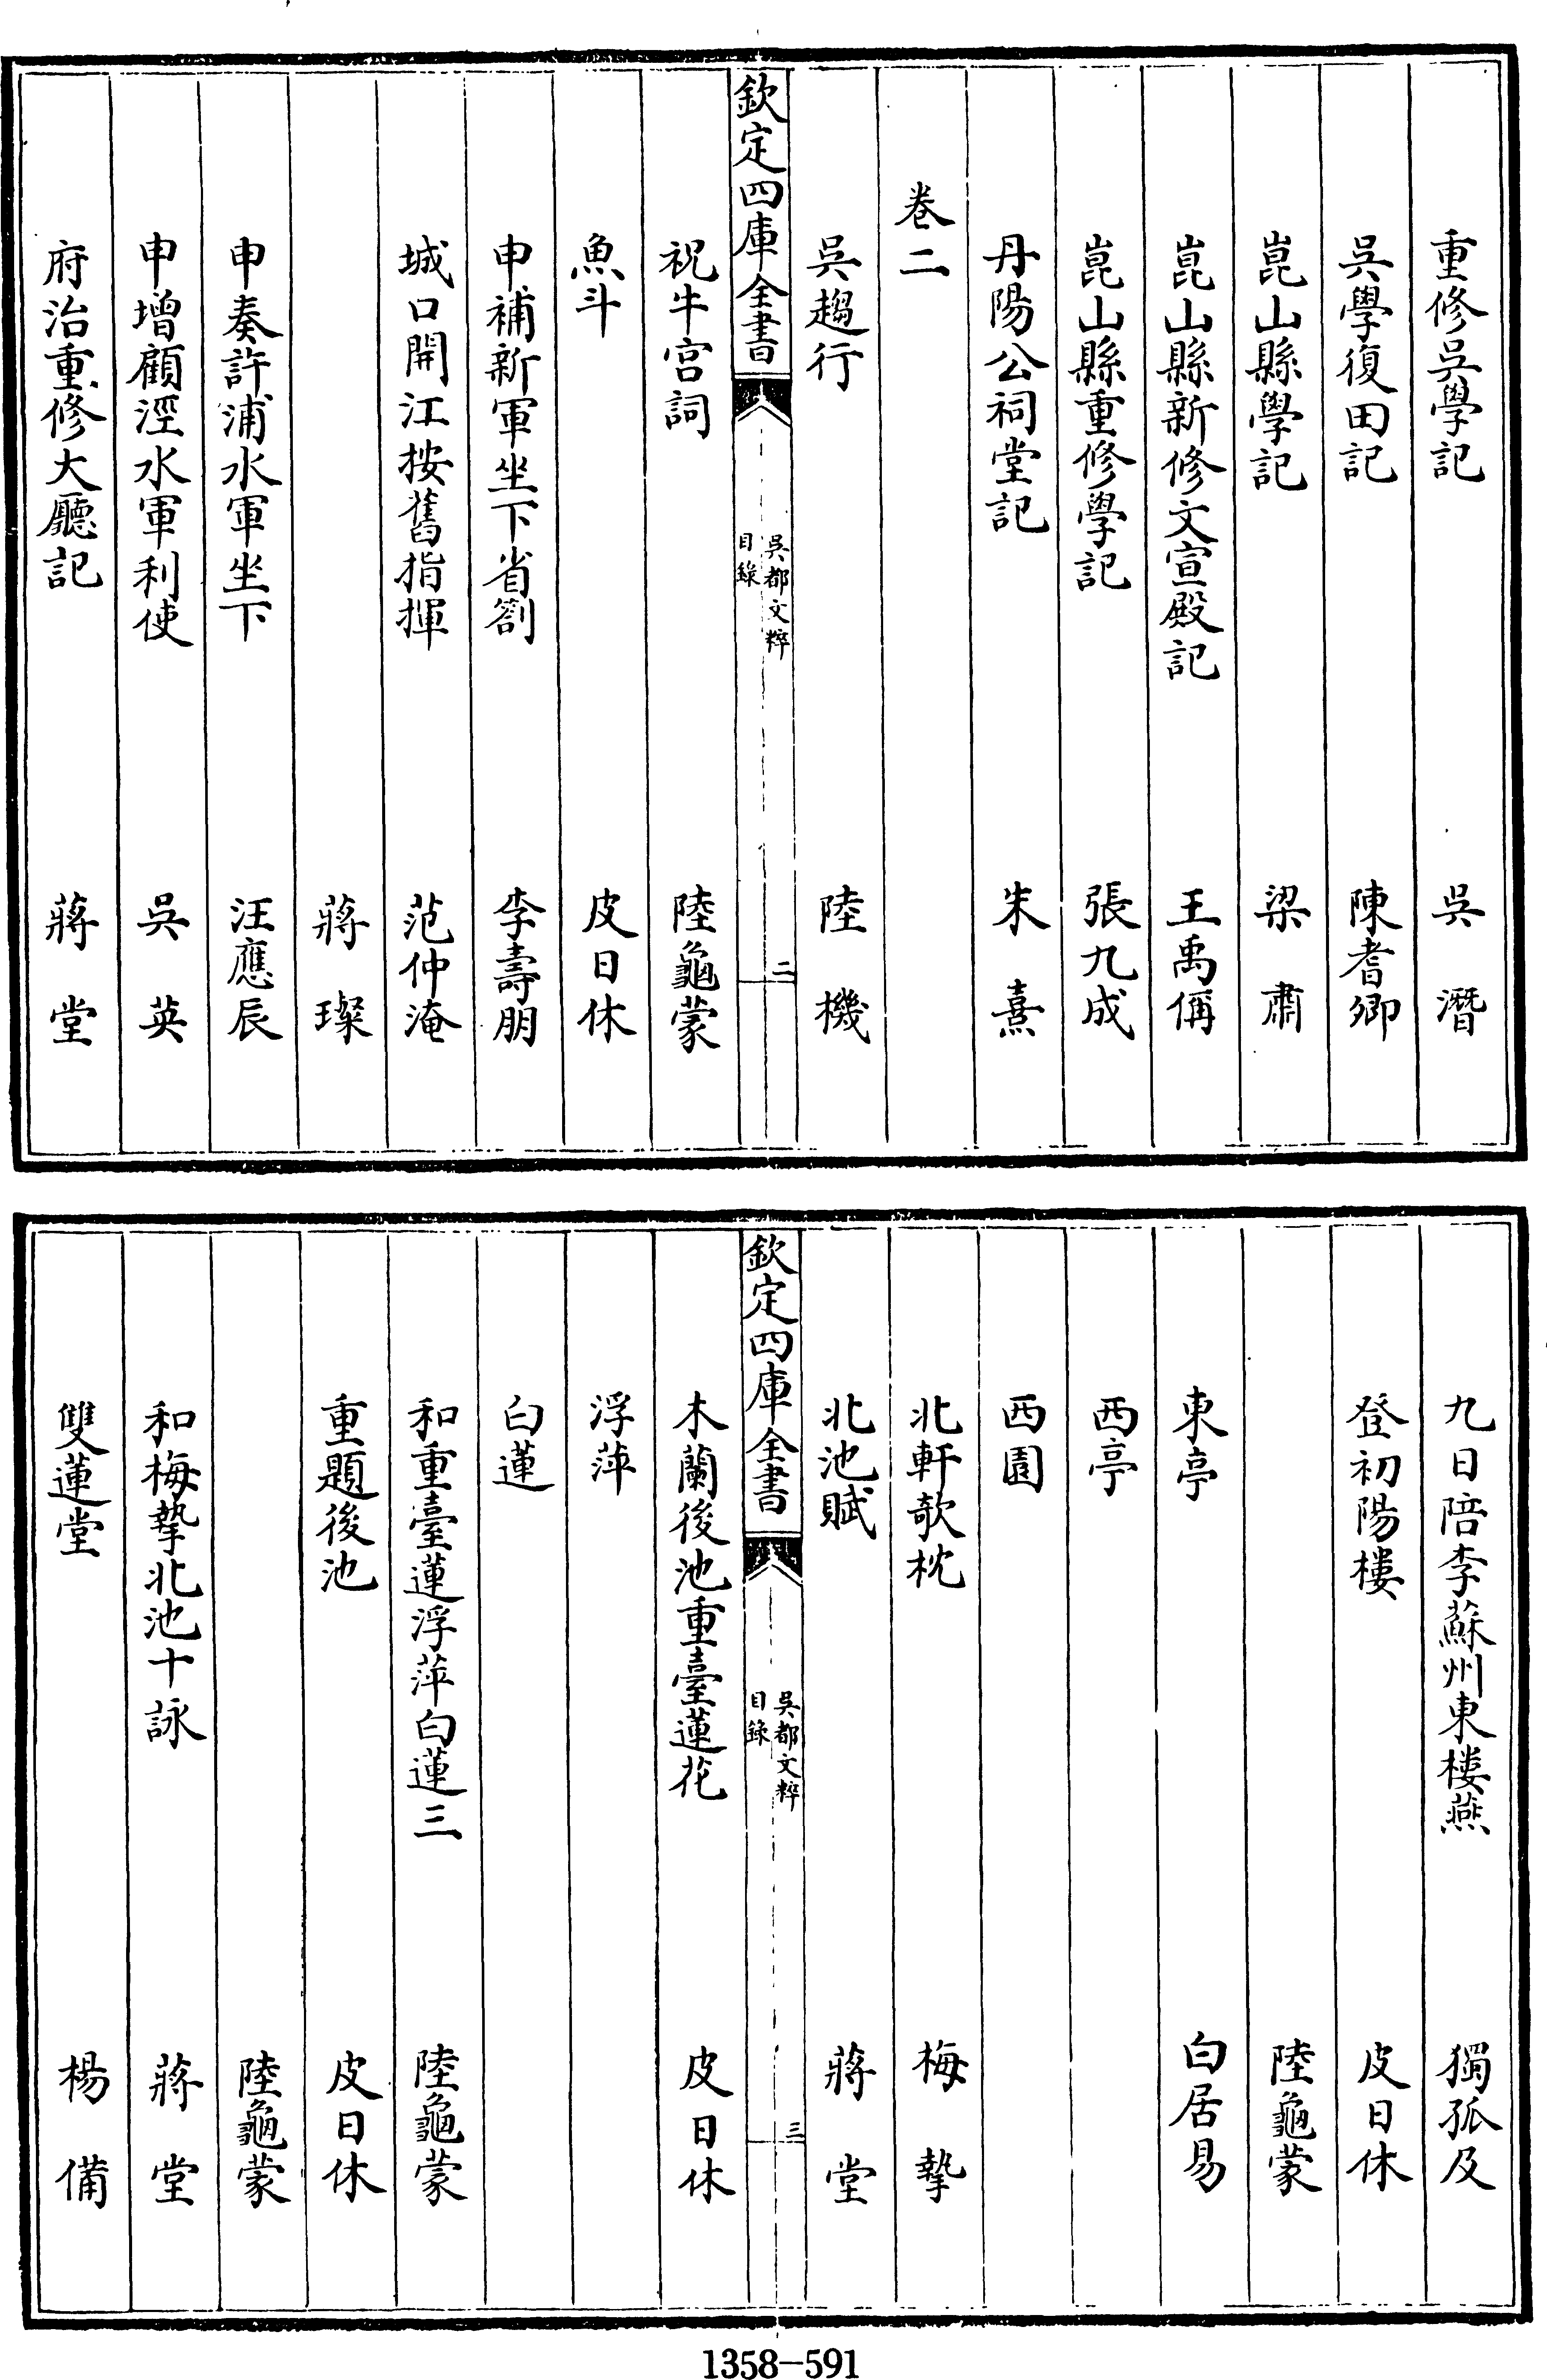 重修吳學記 吳潛
吳學復田記 陳耆卿
崑山縣學記 梁肅
崑山縣新修文宣殿記 王禹偁
崑山縣重修學記 張九成
丹陽公祠堂記 朱熹
卷二
吳趨行 陸機
欽定四庫全書 吳都文粹 目錄 二
祝牛宮詞 陸龜蒙
魚斗 皮日休
申補新軍坐下省劄 李壽朋
城口開江按舊指揮 范仲淹
蔣璨
申奏許浦水軍坐下 汪應辰
申增顧涇水軍利使 吳英
府治重修大廳記 蔣堂
九日陪李蘇州東樓燕 獨孤及
登初陽樓 皮日休
陸龜蒙
東亭 白居易
西亭
西園
北軒欹枕 梅摯
北池賦 蔣堂
欽定四庫全書 吳都文粹 目錄 三
木蘭後池重臺蓮花 皮日休
浮萍
白蓮
和重臺蓮浮萍白蓮三 陸龜蒙
重題後池 皮日休
陸龜蒙
和梅摯北池十詠 蔣堂
雙蓮堂 楊備
1358-591